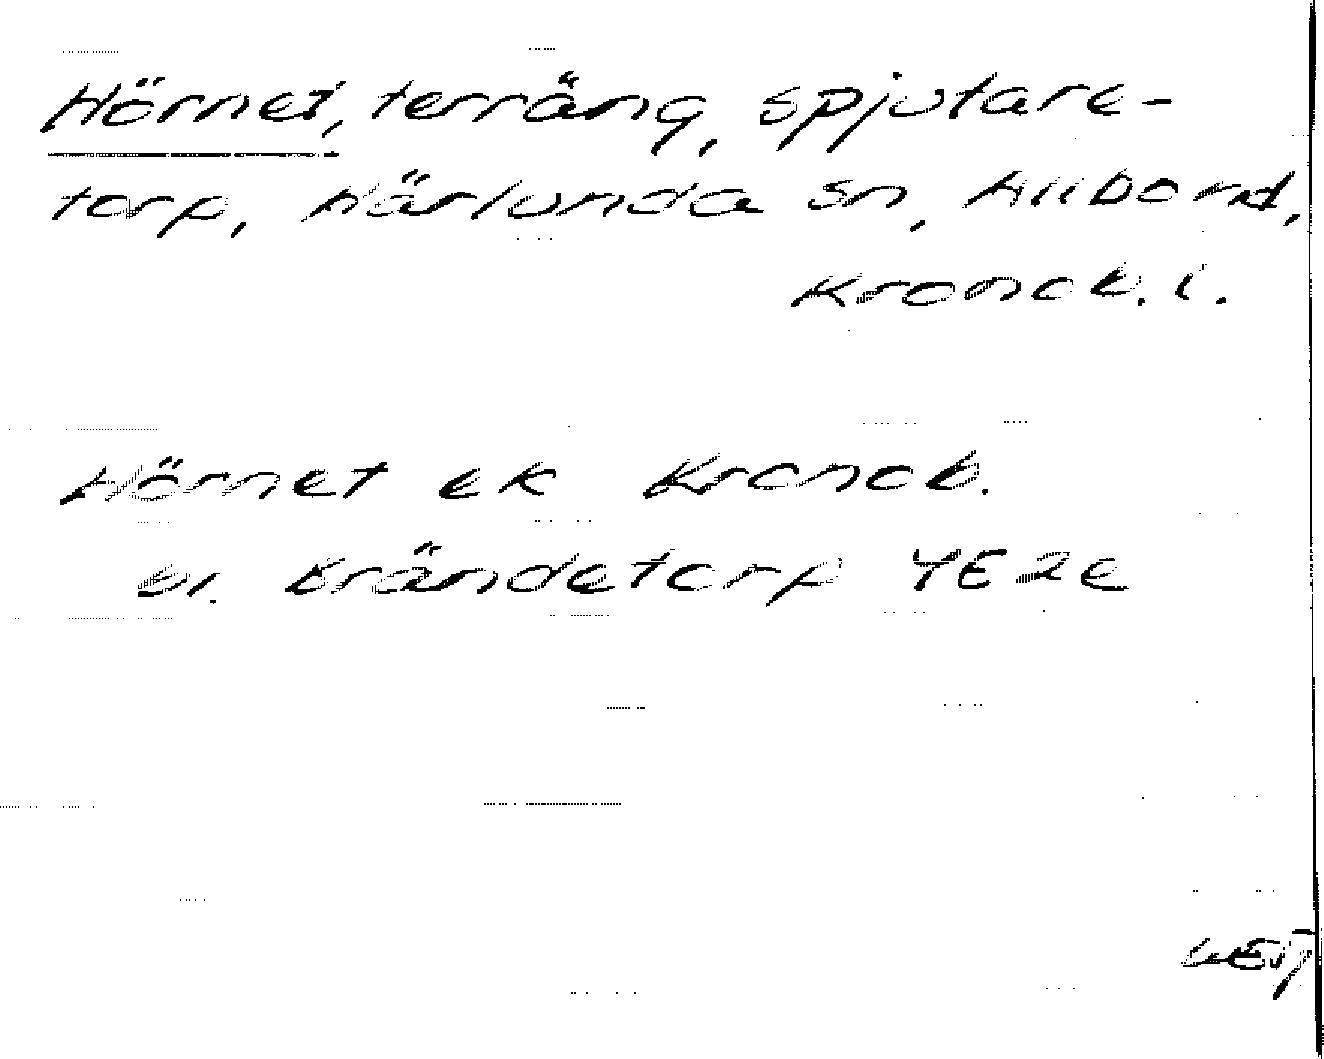 Hörnet, terräng, Spjutare-
torp, Härlunda sn, Allbo hd,
Kronob. l.
Hörnet ek Kronob.
bl. Brändetorp 4E 2e